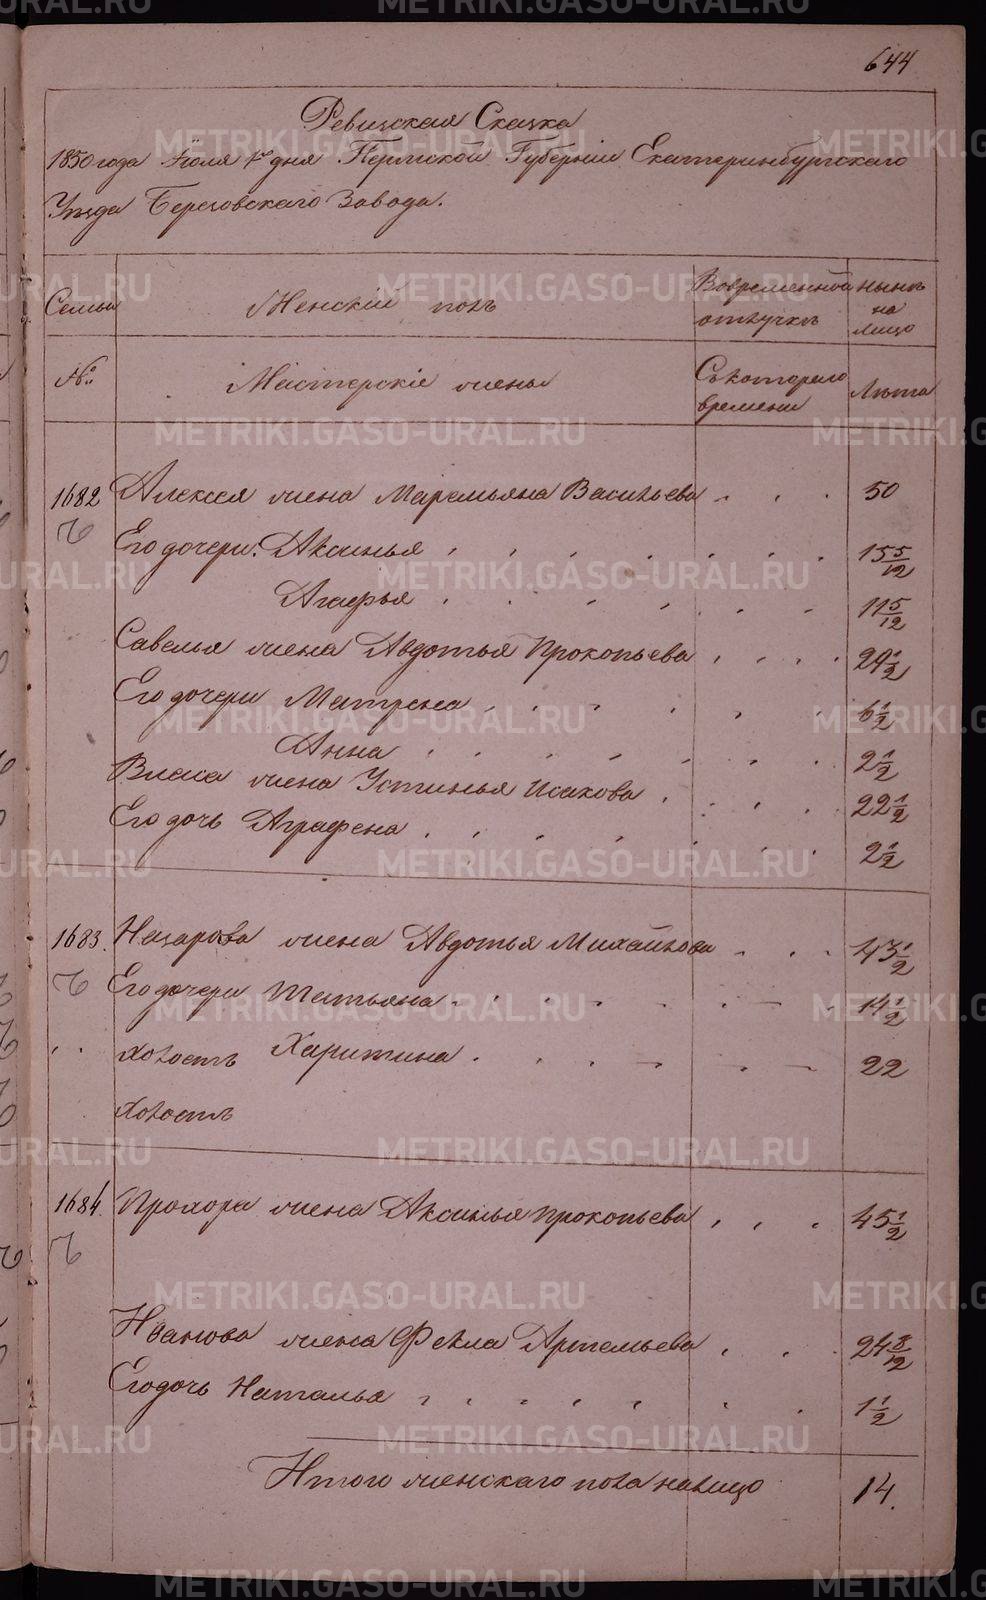 644
Ревизская Сказка
1850 года Іюля 1го дня Пермской Губерніи Екатеринбургскаго
Уѣзда Березовскаго Завода.
Семьи Женскій полъ Во временной отлучкѣ нынѣ на лицо
№: Мастерскіе жены Съ котораго времени Лѣта
1682 Алексея жена Маремьяна Васильева 50
Его дочери: Аксинья 15 5/12
Агафья 11 5/12
Савелья жена Авдотья Прокопьева 29 1/2
Его дочери Матрена 6 1/2
Анна 2 1/2
Власа жена Устинья Исакова 22 1/2
Его дочь Аграфена 2 1/2
1683. Назарова жена Авдотья Михайлова 43 1/2
Его дочери Татьяна 14 1/2
холостъ Харитина 22
холостъ
1684. Прохора жена Аксинья Прокопьева 45 1/2
Иванова жена Фекла Артемьева 24 8/12
Его дочь Наталья 1 1/2
Итого женскаго пола налицо 14.
METRIKI.GASO-URAL.RU